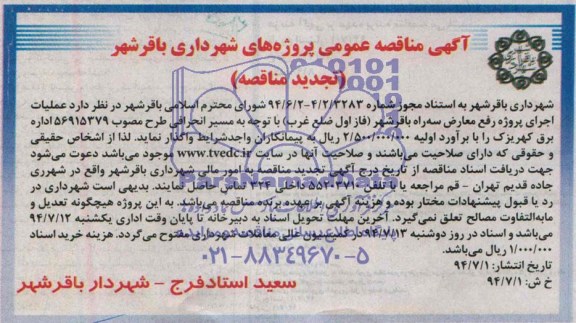 آگهی مناقصه عمومی پروژه‌های شهرداری باقرشهر
(تجدید مناقصه)
شهرداری باقرشهر به استناد مجوز شماره ۴/۲/۳۲۸۳-۹۴/۶/۲ شورای محترم اسلامی باقرشهر در نظر دارد عملیات
اجرای پروژه رفع معارض سه‌راه باقرشهر (فاز اول ضلع غرب) با توجه به مسیر انحرافی طرح مصوب ۵۶۹۱۵۳۷۹ اداره
برق کهریزک را با برآورد اولیه ۲/۵۰۰/۰۰۰/۰۰۰ ریال به پیمانکاران واجدشرایط واگذار نماید. لذا از اشخاص حقیقی
و حقوقی که دارای صلاحیت می‌باشند و صلاحیت آنها در سایت www.tvedc.ir موجود می‌باشد دعوت می‌شود
جهت دریافت اسناد مناقصه از تاریخ درج آگهی تجدید مناقصه به امور مالی شهرداری باقرشهر واقع در شهرری
جاده قدیم تهران - قم مراجعه یا با تلفن ۵۵۲۰۳۷۱۰ داخلی ۳۲۴ تماس حاصل نمایند. بدیهی است شهرداری در
رد یا قبول پیشنهادات مختار بوده و هزینه آگهی بر عهده برنده مناقصه می‌باشد. به این پروژه هیچگونه تعدیل و
مابه‌التفاوت مصالح تعلق نمی‌گیرد. آخرین مهلت تحویل اسناد به دبیرخانه تا پایان وقت اداری یکشنبه ۹۴/۷/۱۲
می‌باشد و اسناد در روز دوشنبه ۹۴/۷/۱۳ در کمیسیون عالی معاملات شهرداری مفتوح می‌گردد. هزینه خرید اسناد
۱/۰۰۰/۰۰۰ ریال می‌باشد.
۰۲۱-۸۸۳۴۹۶۷۰-۵
تاریخ انتشار: ۹۴/۷/۱
خ ش: ۹۴/۷/۱
سعید استادفرج - شهردار باقرشهر